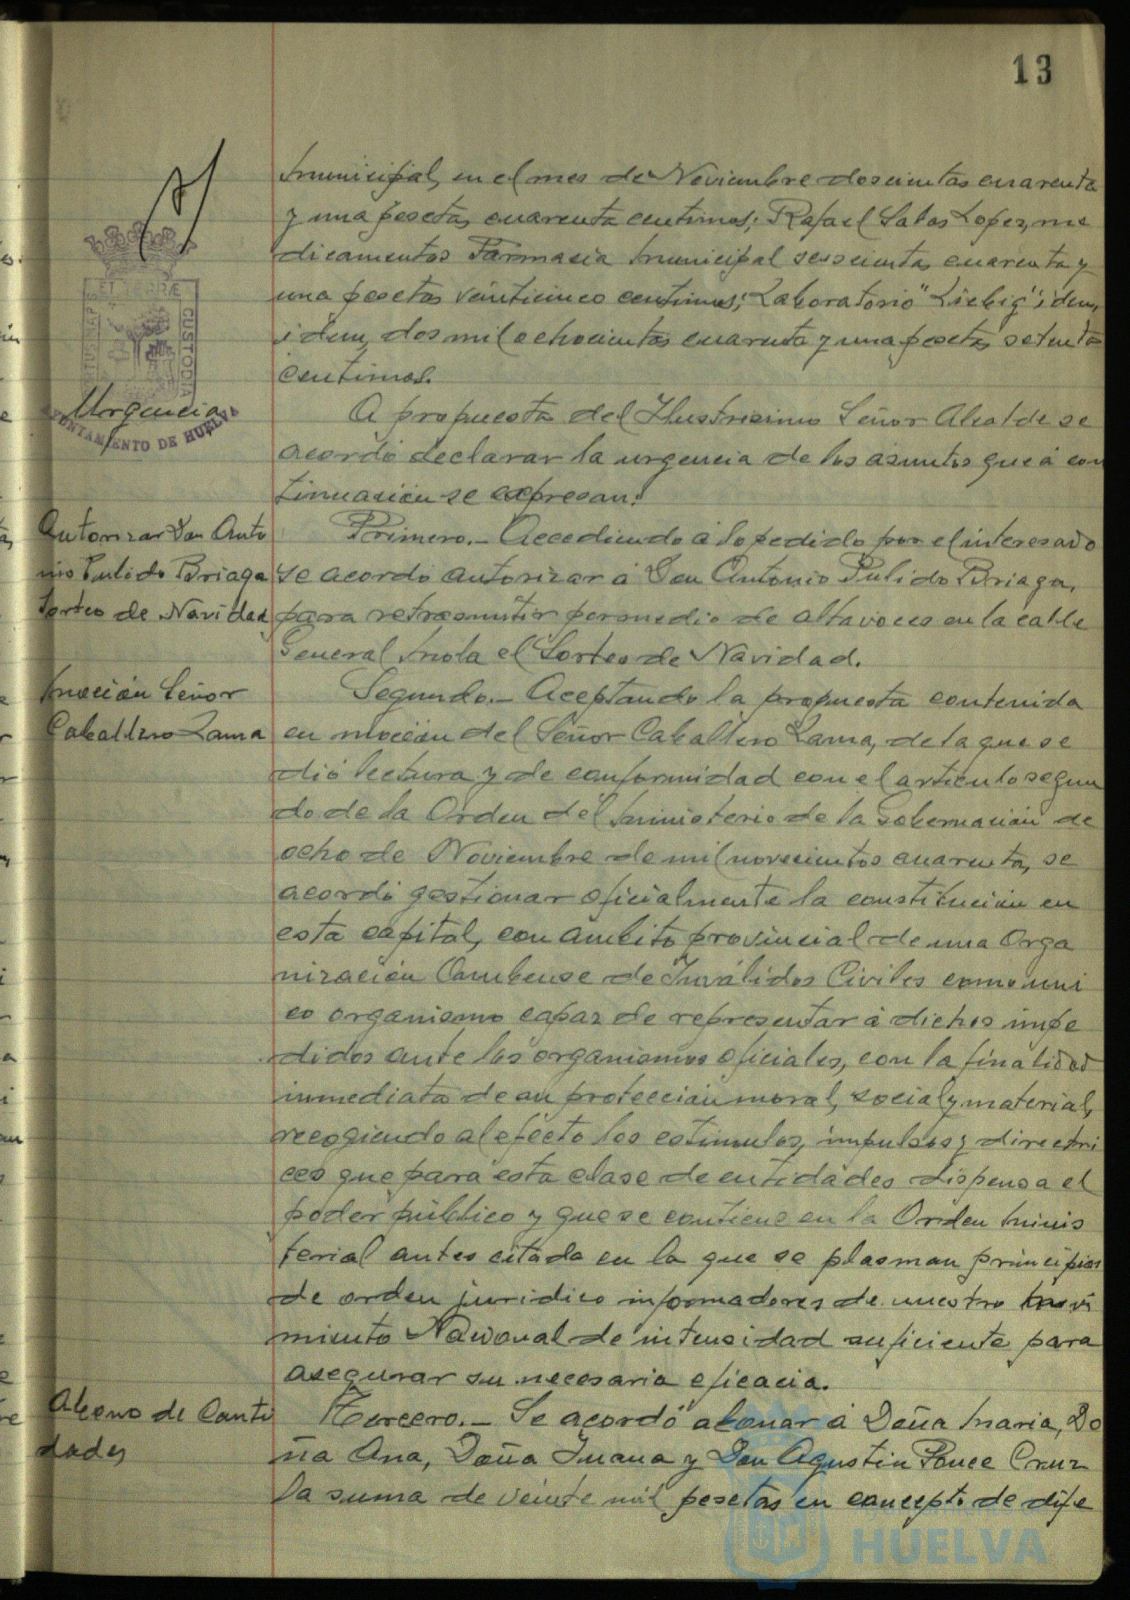 13
municipal, en el mes de Noviembre doscientas cuarenta
y una pesetas cuarenta centimos; Rafael Salas Lopez, me
dicamentos Farmacia municipal seiscientas cuarenta y
una pesetas veinticinco centimos; Laboratorio "Liebig" idem,
idem, dos mil ochocientas cuarenta y una pesetas setenta
centimos.
ET TERRÆ
CUSTODIA
AYUNTAMIENTO DE HUELVA
Urgencia
A propuesta del Ilustrisimo Señor Alcalde se
acordó declarar la urgencia de los asuntos que á con
tinuación se expresan:
Autorizar Don Anto
nio Pulido Briaga
Sorteo de Navidad
Primero.- Accediendo á lo pedido por el interesado
se acordó autorizar á Don Antonio Pulido Briaga,
para retrasmitir por medio de altavoces en la calle
General Mola el Sorteo de Navidad.
Moción Señor
Caballero Lama
Segundo.- Aceptando la propuesta contenida
en moción del Señor Caballero Lama, de la que se
dió lectura y de conformidad con el articulo segun
do de la Orden del Ministerio de la Gobernación de
ocho de Noviembre de mil novecientos cuarenta, se
acordó gestionar oficialmente la constitución en
esta capital, con ámbito provincial de una Orga
nización Onubense de Inválidos Civiles como uni
co organismo capaz de representar á dichos impe
didos ante los organismos oficiales, con la finalidad
inmediata de su protección moral, social y material,
recogiendo al efecto los estimulos, impulsos y directri
ces que para esta clase de entidades dispensa el
poder público y que se contiene en la Orden Minis
terial antes citada en la que se plasman principios
de orden juridico informadores de nuestro Movi
miento Nacional de intensidad suficiente para
asegurar su necesaria eficacia.
Abono de Canti
dades
Tercero.- Se acordó abonar á Doña Maria, Do
ña Ana, Doña Juana y Don Agustin Ponce Cruz
la suma de veinte mil pesetas en concepto de dife
HUELVA